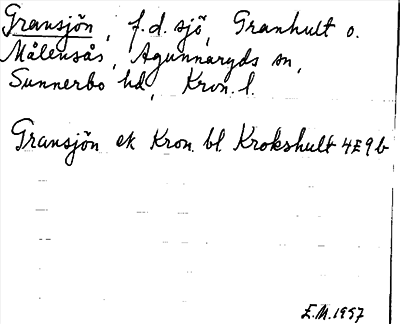 Gransjön, f.d. sjö, Granhult o.
Målensås, Agunnaryds sn,
Sunnerbo hd, Kron. l.
Gransjön ek Kron. bl. Krokshult 4E9b
E.M. 1957